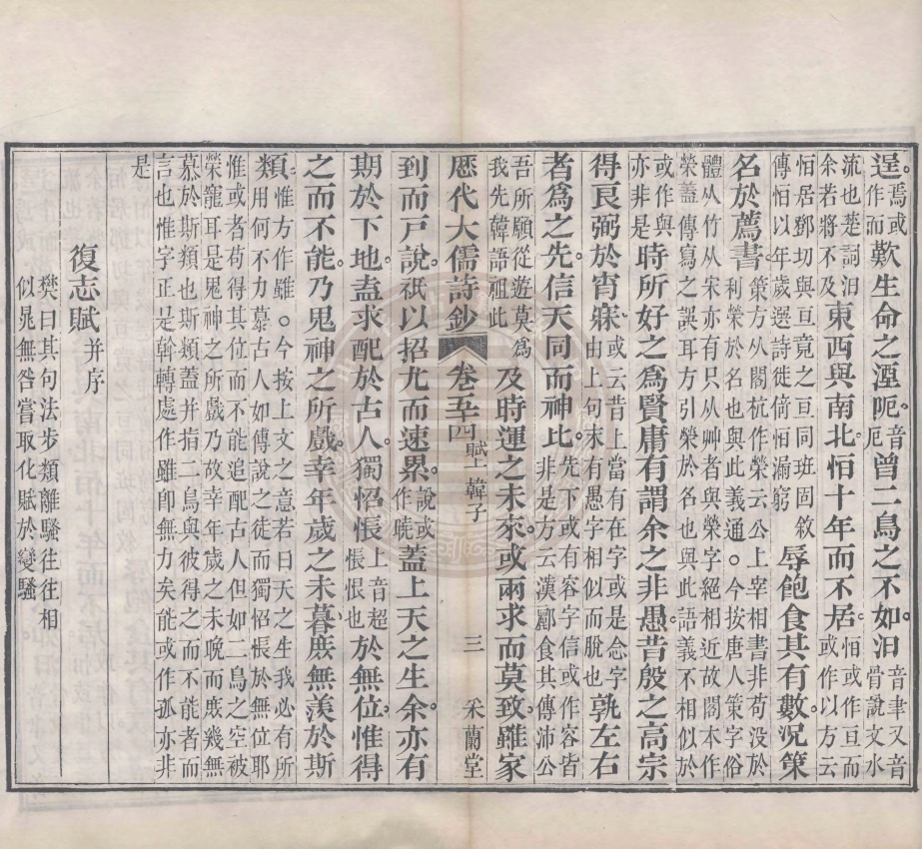 逞。焉或作而歎生命之湮阨。音厄曾二鳥之不如汩音聿又音骨說文水
流也楚詞汩余若將不及東西與南北㤆十年而不居。㤆或作亘而或作以方云
㤆居鄧切與亘竟之亘同班固敘傳㤆以年歲選詩徒倚㤆漏窮辱飽食其有數況筞
名於薦書策方从閣杭作榮云公上宰相書非苟没於利榮於名也與此義通○今按唐人策字俗
體从竹从宋亦有只从艸者與榮字絕相近故閣本作榮蓋傳寫之誤耳方引榮於名也與此語義不相似於
或作與亦非是時所好之爲賢庸有謂余之非愚昔殷之高宗
得良弼於宵寐或云昔上當有在字或是念字由上句末有愚字相似而脫也孰左右
者爲之先信天同而神比。先下或有容字信或作容皆非是方云漢酈食其傳沛公
吾所願從遊莫爲我先韓語祖此及時運之未來。或兩求而莫致。雖家
歷代大儒詩鈔 卷五十四賦上韓子 三 采蘭堂
到而戶說。祇以招尤而速累。說或作曉蓋上天之生余亦有
期於下地盍求配於古人獨怊悵上音超悵恨也於無位。惟得
之而不能。乃鬼神之所戲。幸年歲之未暮庶無羨於斯
類。惟方作雖○今按上文之意若曰天之生我必有所用何不力慕古人如傅說之徒而獨怊悵於無位耶
惟或者苟得其位而不能追配古人但如二鳥之空被榮寵耳是鬼神之所戲乃故幸年歲之未晚而庶幾無
慕於斯類也斯類蓋并指二鳥與彼得之而不能者而言也惟字正是斡轉處作雖卽無力矣能或作孤亦非
是
復志賦并序
樊曰其句法步類離騷往往相似晁無咎嘗取化賦於變騷